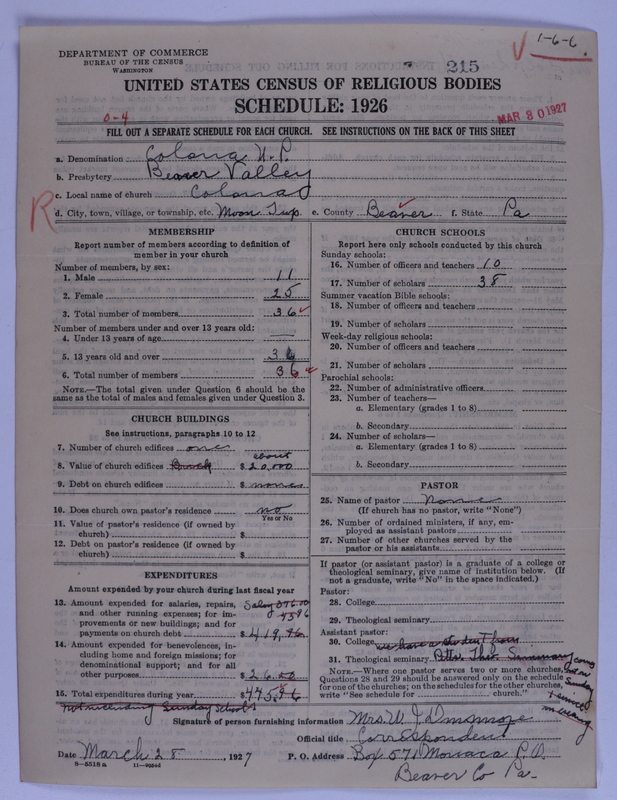 1-6-6
DEPARTMENT OF COMMERCE
BUREAU OF THE CENSUS
WASHINGTON
215
UNITED STATES CENSUS OF RELIGIOUS BODIES
SCHEDULE: 1926
MAR 30 1927
0-4
FILL OUT A SEPARATE SCHEDULE FOR EACH CHURCH. SEE INSTRUCTIONS ON THE BACK OF THIS SHEET
a. Denomination Colona U.P.
b. Presbytery Beaver Valley
c. Local name of church Colona
R
d. City, town, village, or township, etc. Moon Twp. e. County Beaver f. State Pa
MEMBERSHIP
Report number of members according to definition of
member in your church
Number of members, by sex:
1. Male 11
2. Female 25
3. Total number of members 36
Number of members under and over 13 years old:
4. Under 13 years of age
5. 13 years old and over 36
6. Total number of members 36
NOTE.—The total given under Question 6 should be
same as the total of males and females given under Question 3.
CHURCH BUILDINGS
See instructions, paragraphs 10 to 12
7. Number of church edifices one
about
8. Value of church edifices Brick $ 20,000
9. Debt on church edifices $ none
10. Does church own pastor's residence no
Yes or No
11. Value of pastor's residence (if owned by
church) $
12. Debt on pastor's residence (if owned by
church) $
EXPENDITURES
Amount expended by your church during last fiscal year
13. Amount expended for salaries, repairs,
and other running expenses; for im-
provements or new buildings; and for
payments on church debt $ 419.96
14. Amount expended for benevolences, in-
cluding home and foreign missions; for
denominational support; and for all
other purposes $ 26.00
15. Total expenditures during year $ 445.96
not including Sunday school
CHURCH SCHOOLS
Report here only schools conducted by this church
Sunday schools:
16. Number of officers and teachers 10
17. Number of scholars 38
Summer vacation Bible schools:
18. Number of officers and teachers
19. Number of scholars
Week-day religious schools:
20. Number of officers and teachers
21. Number of scholars
Parochial schools:
22. Number of administrative officers
23. Number of teachers—
a. Elementary (grades 1 to 8)
b. Secondary
24. Number of scholars—
a. Elementary (grades 1 to 8)
b. Secondary
PASTOR
25. Name of pastor None
(If church has no pastor, write "None")
26. Number of ordained ministers, if any, em-
ployed as assistant pastors
27. Number of other churches served by the
pastor or his assistants
If pastor (or assistant pastor) is a graduate of a college or
theological seminary, give name of institution below. (If
not a graduate, write "No" in the space indicated.)
Pastor:
28. College
29. Theological seminary
Assistant pastor:
30. College we have a student from
31. Theological seminary Pitts. Theo. Seminary
NOTE.—Where one pastor serves two or more churches,
Questions 28 and 29 should be answered only on the schedule
for one of the churches; on the schedules for the other churches,
write "See schedule for church."
Signature of person furnishing information Mrs. W J Dinsmore
Official title Correspondent
Date March 28, 1927 P. O. Address Box 571 Monaca P.O.
8-5518 a
Beaver Co Pa.